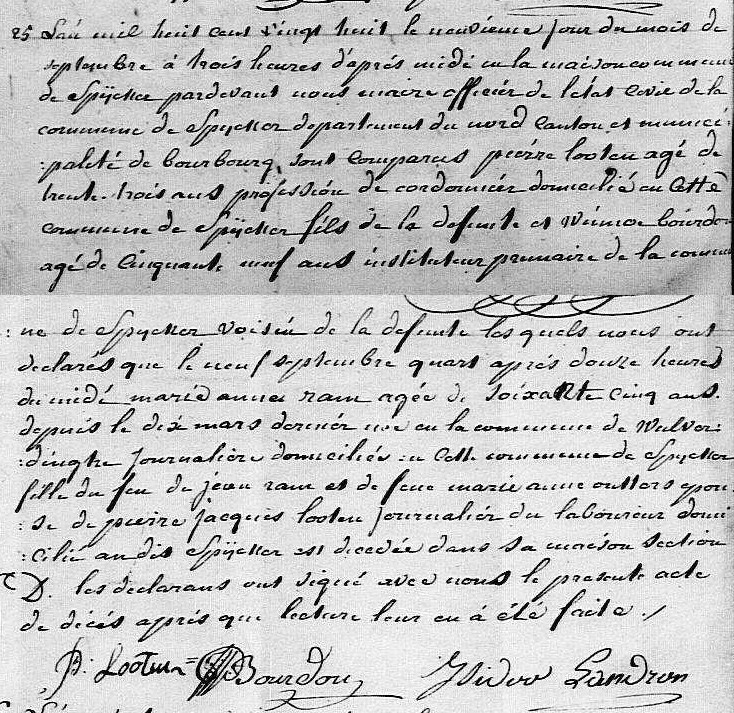 25 L'an mil huit cent vingt huit le neuvieme jour du mois de
septembre à trois heures d'aprés midé en la maison commune
de Spÿcker pardevant nous maire officiér de l'état civil de la
commune de Spÿcker departement du nord canton et munici:
:palité de bourbourg, sont comparus pierre looten agé de
trente-trois ans profession de cordonniér domicilié en cette
commune de Spÿcker fils de la defunte et Winnoc bourdon
agé de cinquante neuf ans instituteur primaire de la commu
:ne de Spÿcker voisin de la defunte les quels nous ont
declarés que le neuf septembre quart aprés douze heures
du midé marie anne ram agée de soixante cinq ans
depuis le dix mars derniér née en la commune de Wulver:
:dinghe journaliére domiciliée en cette commune de Spÿcker
fille du feu de jean ram et de feue marie anne outters epou
:se de pierre jacques looten journaliér du laboureur domi
:cilié audit Spÿcker est decedée dans sa maison section
D. les declarans ont signé avec nous le presente acte
de décés aprés que lecture leur en á été faite ./
P: Looten = W Bourdon Isidor Landron